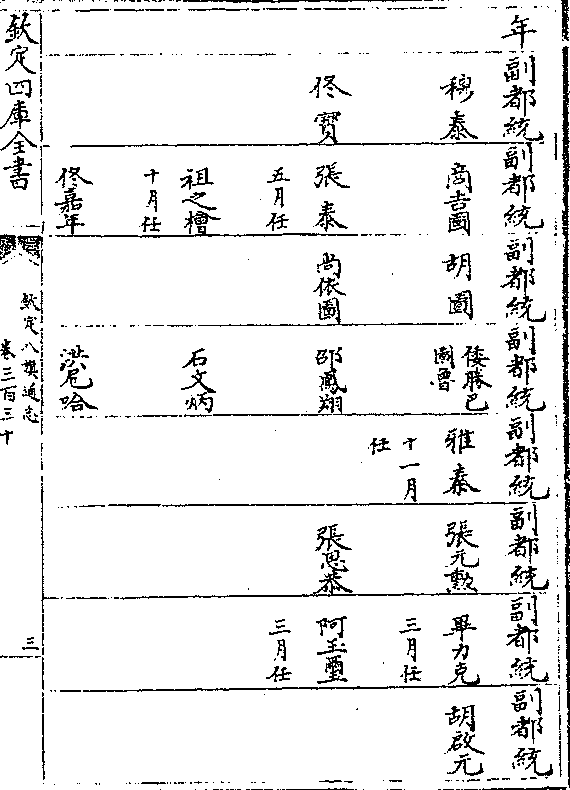 年
副都統
副都統
副都統
副都統
副都統
副都統
副都統
副都統
穆泰
商吉圖
胡圖
倭勝巴
圖魯
雅泰
十一月
任
張元勲
畢力克
三月任
胡啟元
佟寶
張泰
五月任
尚依圖
邵鳳翔
張思恭
阿玉璽
三月任
祖之檜
十月任
石文炳
佟嘉年
洪尼哈
欽定四庫全書
欽定八旗通志
卷三百三十
三